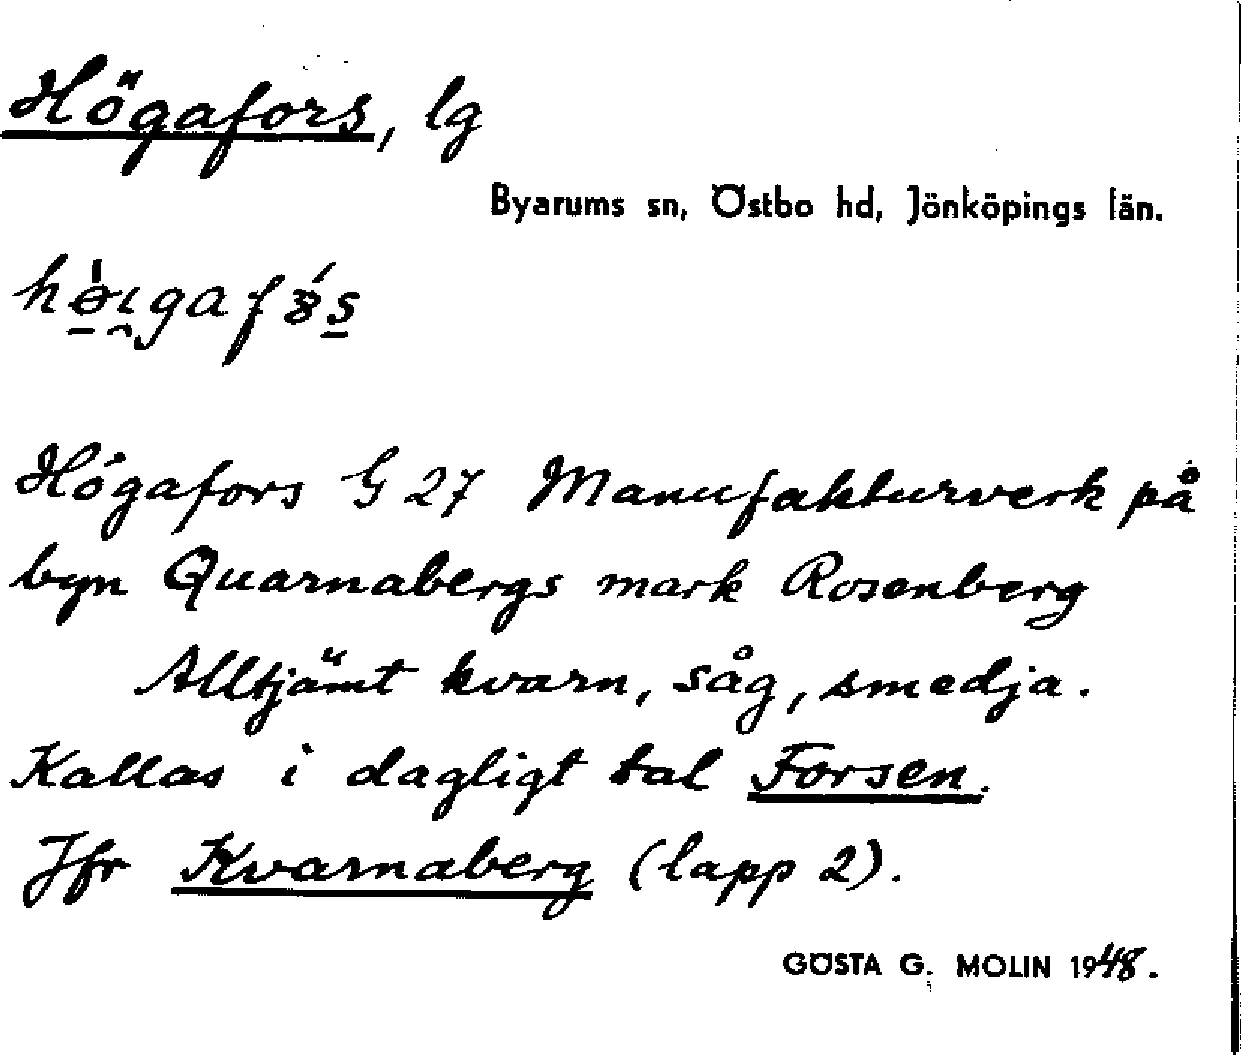 Högafors, lg
Byarums sn, Östbo hd, Jönköpings län.
Högafors G 27 Manufakturverk på
byn Quarnabergs mark Rosenberg
Alltjämt kvarn, såg, smedja.
Kallas i dagligt tal Forsen.
Jfr Kvarnaberg (lapp 2).
GÖSTA G. MOLIN 1948.